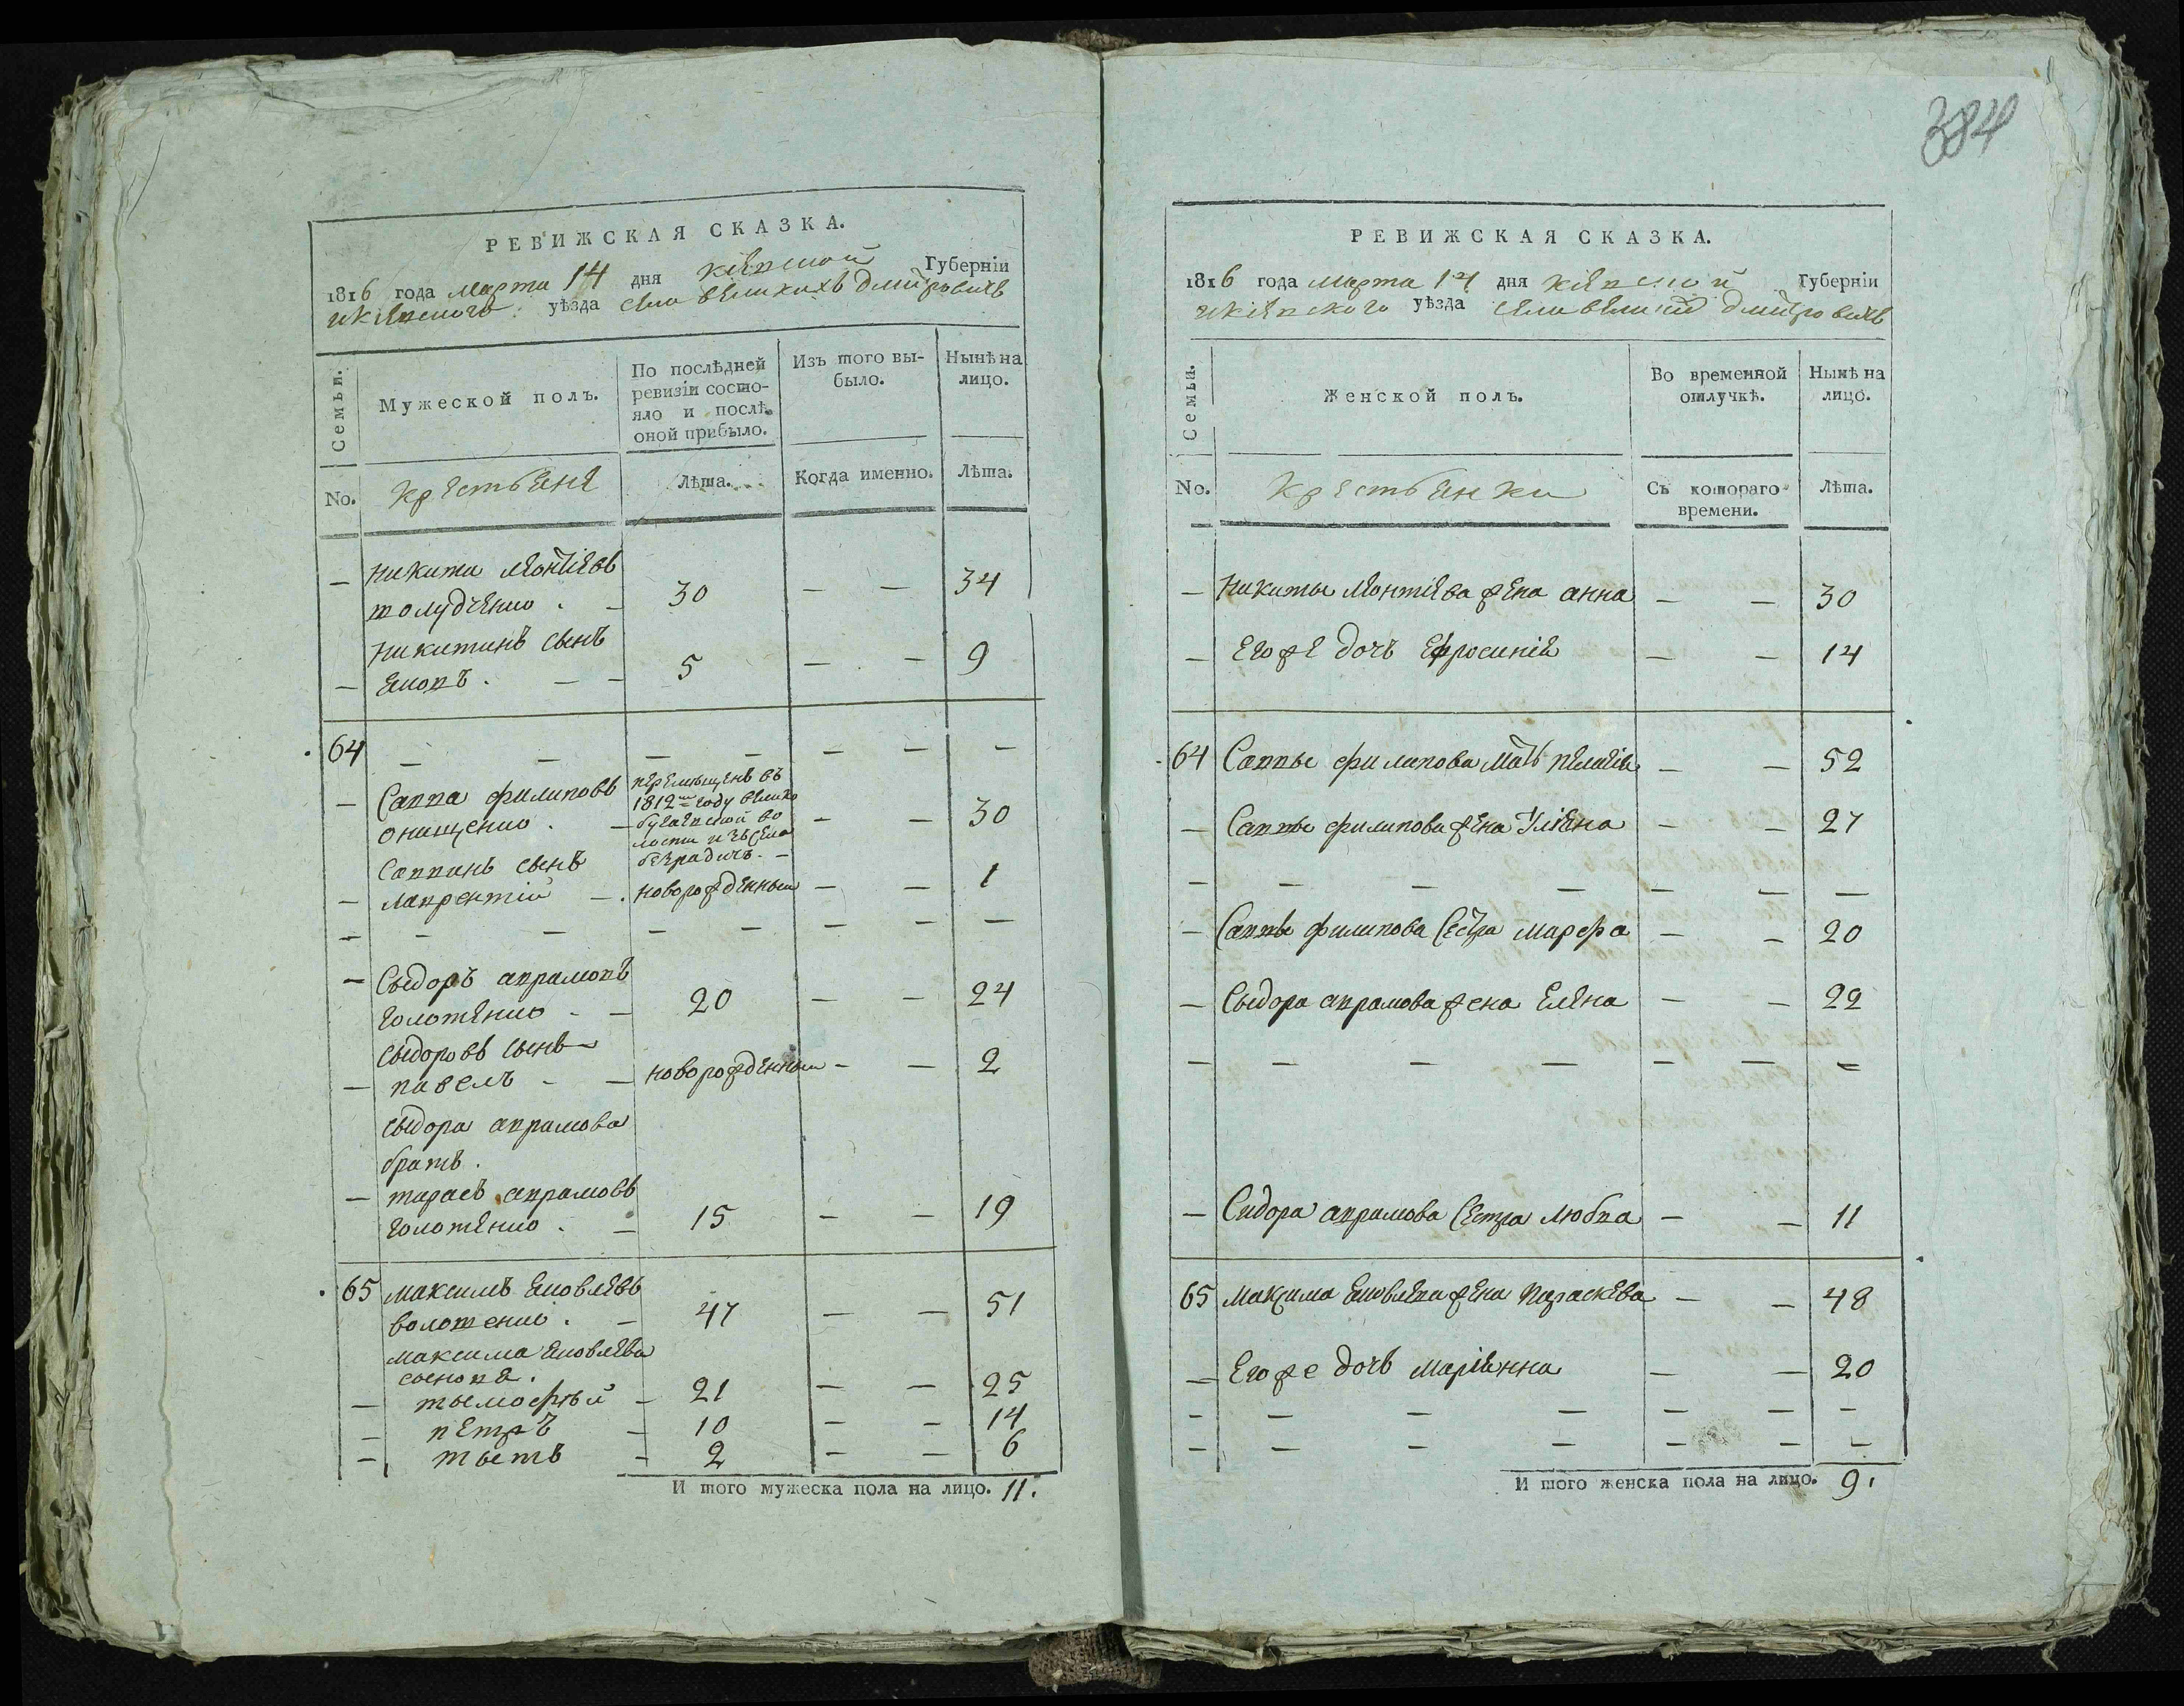 384
РЕВИЖСКАЯ СКАЗКА.
1816 года марта 14 дня кіевской Губерніи
икіевского уѣзда села великихъ дмитровичъ
Семьи.
Мужеской полъ.
По послѣдней ревизіи состояло и послѣ оной прибыло.
Изъ того выбыло.
Нынѣ на лицо.
No.
крестьяне
Лѣта.
Когда именно.
Лѣта.
— никита леонтіевъ
толудченко . — 30 — — 34
никитинъ сынъ
— яковъ . — — 5 — — 9
64 — — — — — — —
— Савва филиповъ
онищенко . —
перемещенъ въ
1812м году велико
бугаевской во
лости изъ села
безрадичъ. —
— — 30
Саввинъ сынъ
— лаврентій — . новорожденный — — 1
— — — — — — — —
— Сыдоръ аврамовъ
голотенко . — 20 — — 24
сыдоровъ сынъ
— павелъ — — новорожденный — — 2
сыдора аврамова
братъ .
— тарасъ аврамовъ
голотенко . — 15 — — 19
65 максимъ яковлевъ
волошені . — 47 — — 51
максима яковлева
сыновя .
— тымофѣй — 21 — — 25
— петръ — 10 — — 14
— тытъ — 2 — — 6
И того мужеска пола на лицо. 11.
РЕВИЖСКАЯ СКАЗКА.
1816 года марта 14 дня кіевской Губерніи
икіевского уѣзда села великий дмитровичъ
Семьи.
Женской полъ.
Во временной отлучкѣ.
Нынѣ на лицо.
No.
крестьянки
Съ котораго времени.
Лѣта.
— никиты леонтіева жена анна — — 30
— Его же дочъ Ефросинія — — 14
64 Саввы филипова мать пелагія — — 52
— Саввы филипова жена Уліяна — — 27
— — — — — — —
— Саввы филипова Сестра марфа — — 20
— Сыдора аврамова жена Елена — — 22
— — — — — — —
— Сидора аврамова Сестра любка — — 11
65 максима яковлева жена Параскева — — 48
— Его же дочъ маріянна — — 20
— — — — — — —
— — — — — — —
И того женска пола на лицо. 9.